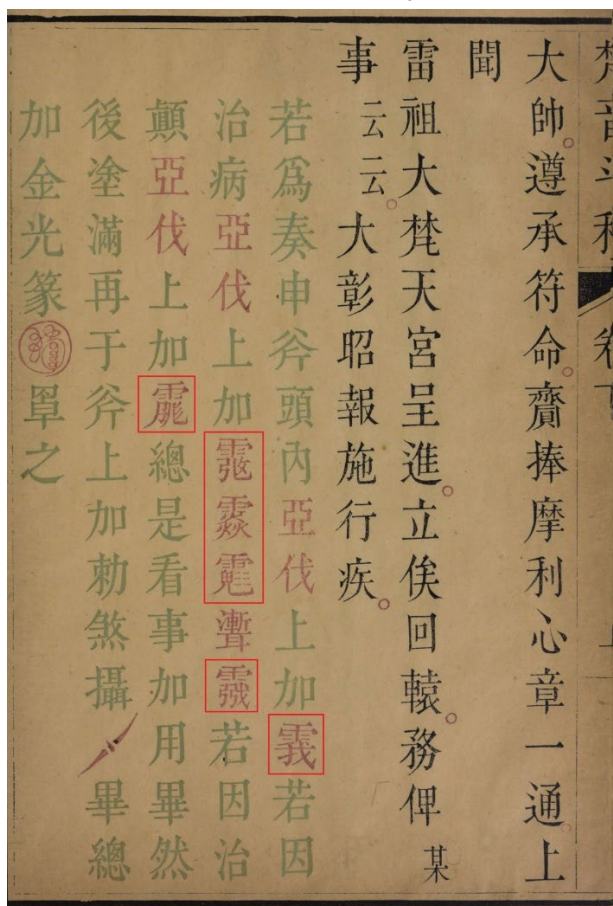 大帥。遵承符命。齎捧摩利心章一通。上
聞
雷祖大梵天宮呈進。立俟回轅。務俾某
事云云。大彰昭報施行疾。
若爲奏申斧頭內亞伐上加若因
治病亞伐上加若因治
顛亞伐上加總是看事加用畢然
後塗滿再于斧上加勅煞攝畢總
加金光篆罩之